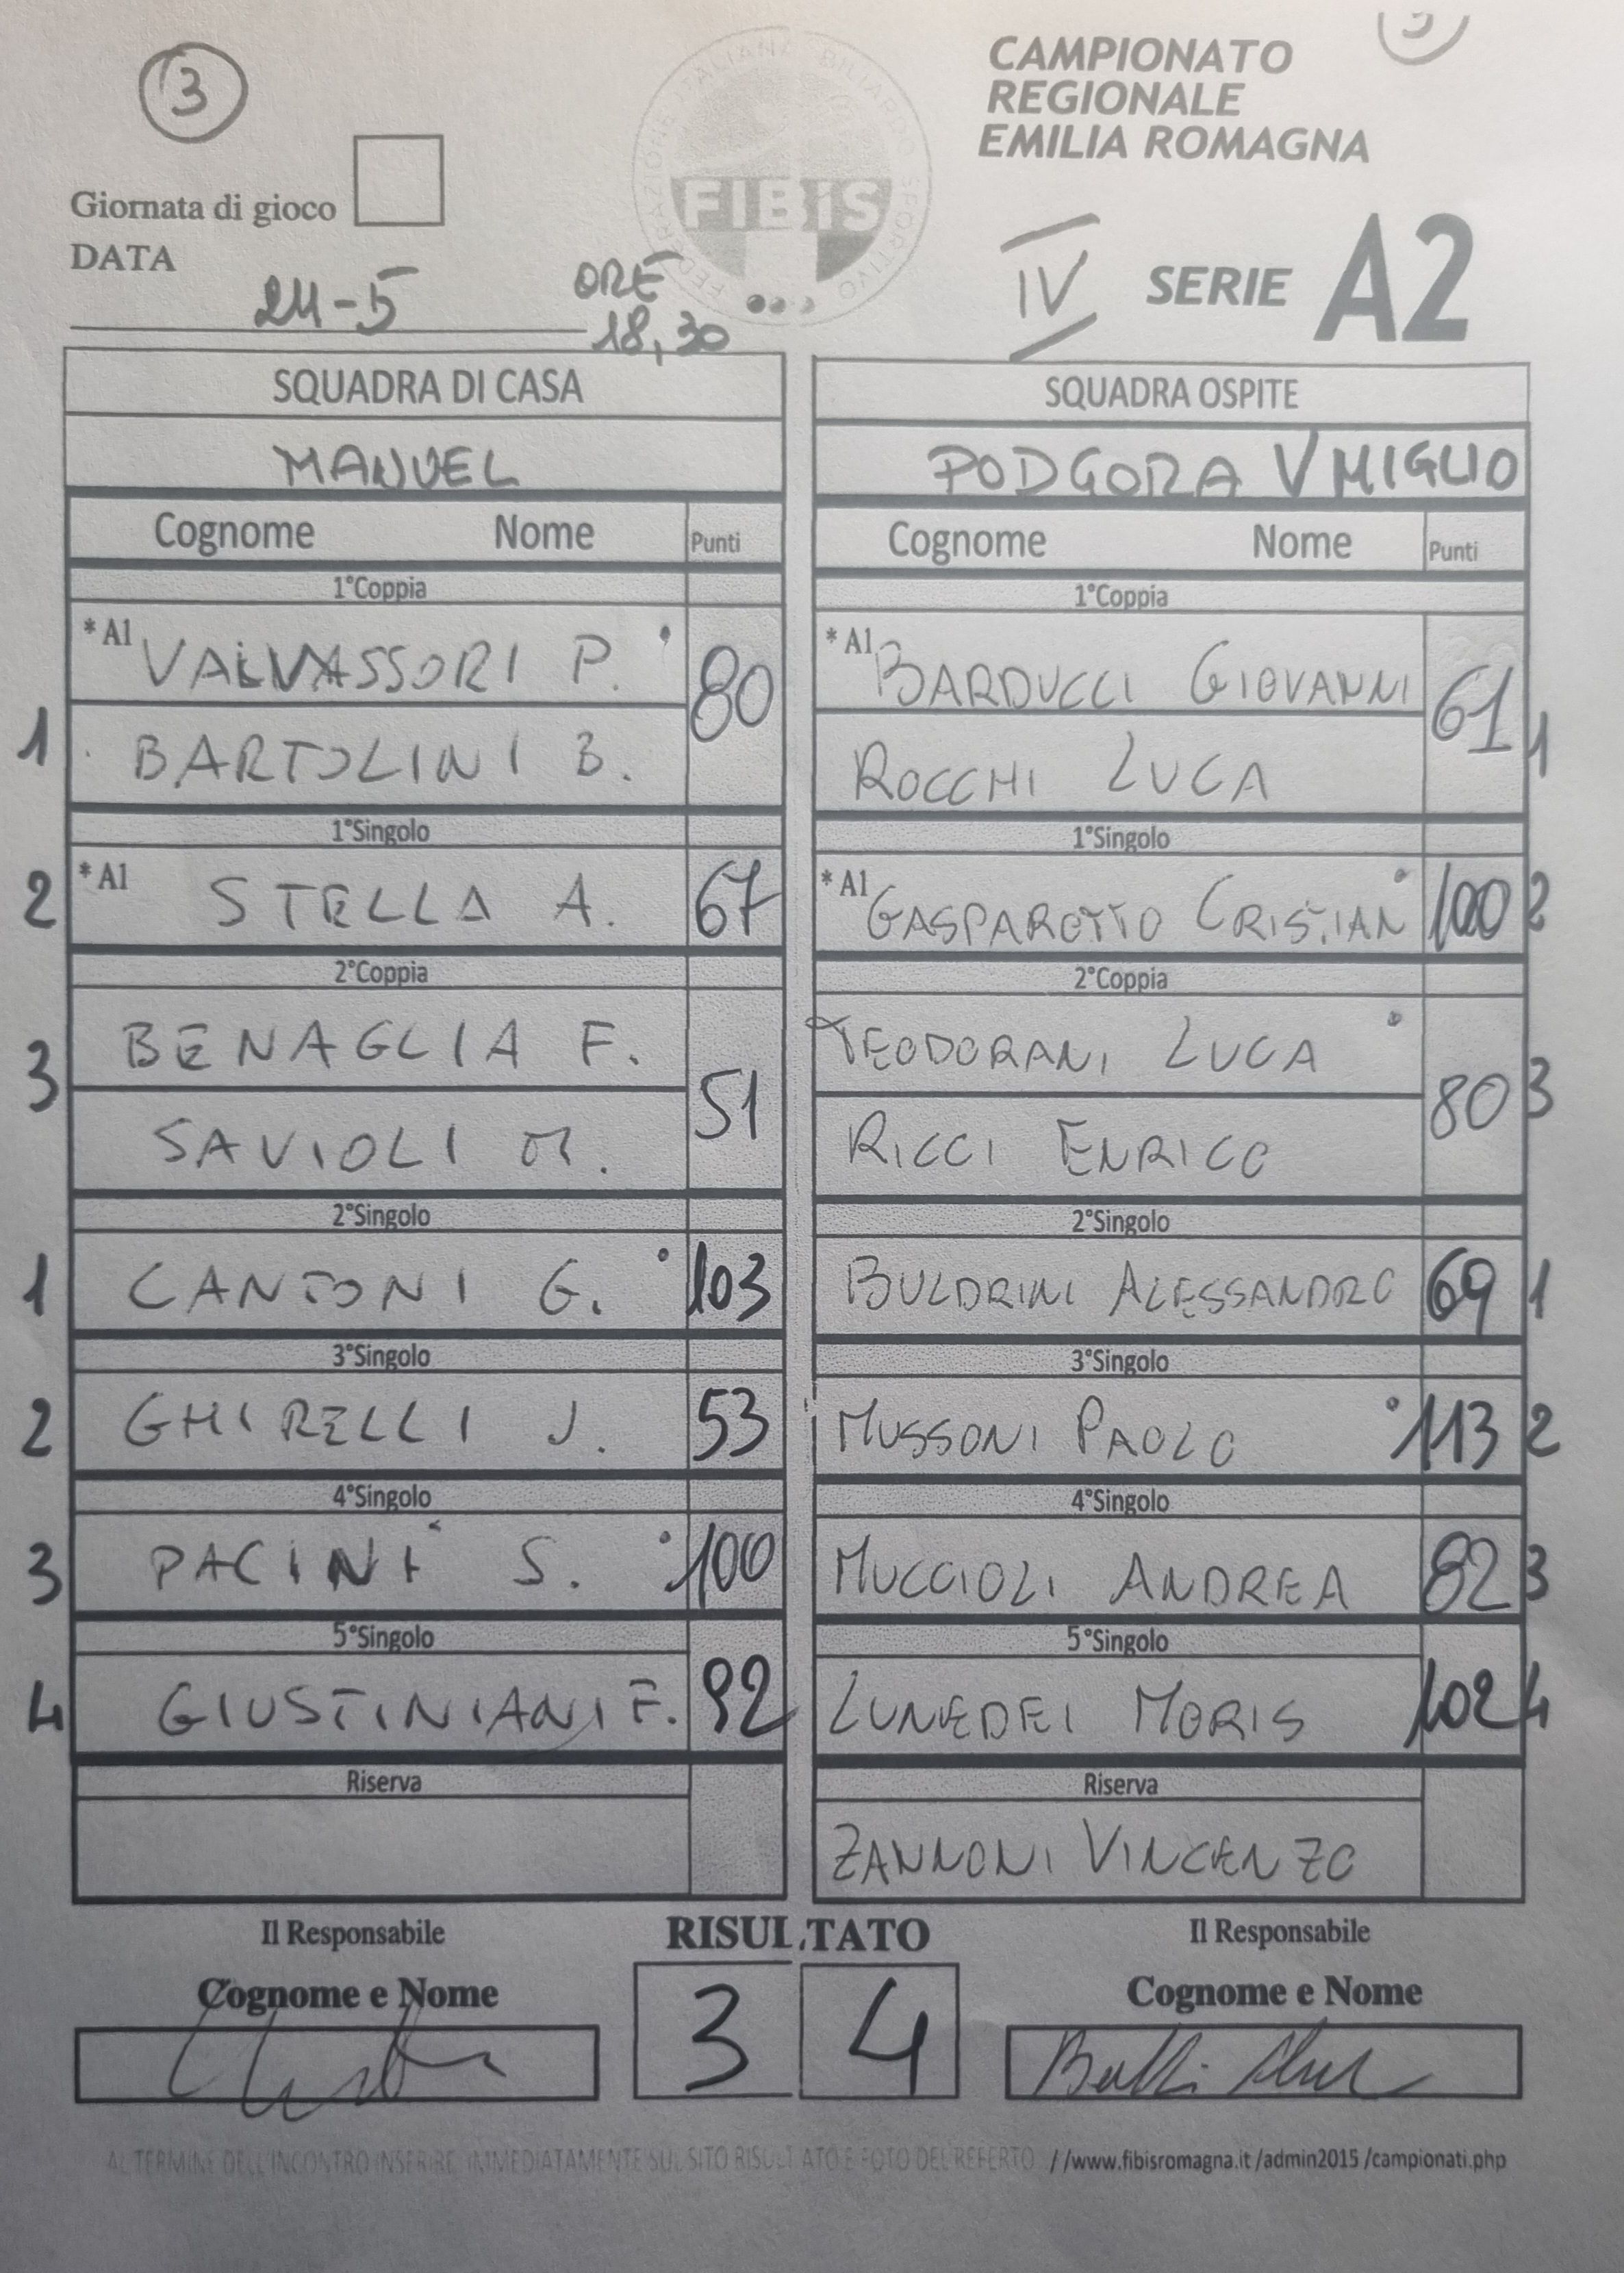 3
CAMPIONATO
REGIONALE
EMILIA ROMAGNA
FEDERAZIONE ITALIANA BILIARDO SPORTIVO
FIBiS
Giornata di gioco
DATA 24-5 ORE 18,30
IV SERIE A2
SQUADRA DI CASA SQUADRA OSPITE
MANUEL PODGORA V MIGLIO
Cognome Nome Punti Cognome Nome Punti
1°Coppia 1°Coppia
*A1 VALVASSORI P. 80 *A1 BARDUCCI GIOVANNI 61
1 BARTOLINI B. ROCCHI LUCA 1
1°Singolo 1°Singolo
2 *A1 STELLA A. 67 *A1 GASPAROTTO CRISTIAN 100 2
2°Coppia 2°Coppia
BENAGLIA F. TEODORANI LUCA
3 SAVIOLI M. 51 RICCI ENRICO 80 3
2°Singolo 2°Singolo
1 CANTONI G. 103 BULDRINI ALESSANDRO 69 1
3°Singolo 3°Singolo
2 GHIRELLI J. 53 MUSSONI PAOLO 113 2
4°Singolo 4°Singolo
3 PACINI S. 100 MUCCIOLI ANDREA 82 3
5°Singolo 5°Singolo
4 GIUSTINIANI F. 92 LUNEDEI MORIS 102 4
Riserva Riserva
ZANNONI VINCENZO
Il Responsabile RISULTATO Il Responsabile
Cognome e Nome 3 4 Cognome e Nome
AL TERMINE DELL'INCONTRO INSERIRE IMMEDIATAMENTE SUL SITO RISULTATO E FOTO DEL REFERTO //www.fibisromagna.it/admin2015/campionati.php